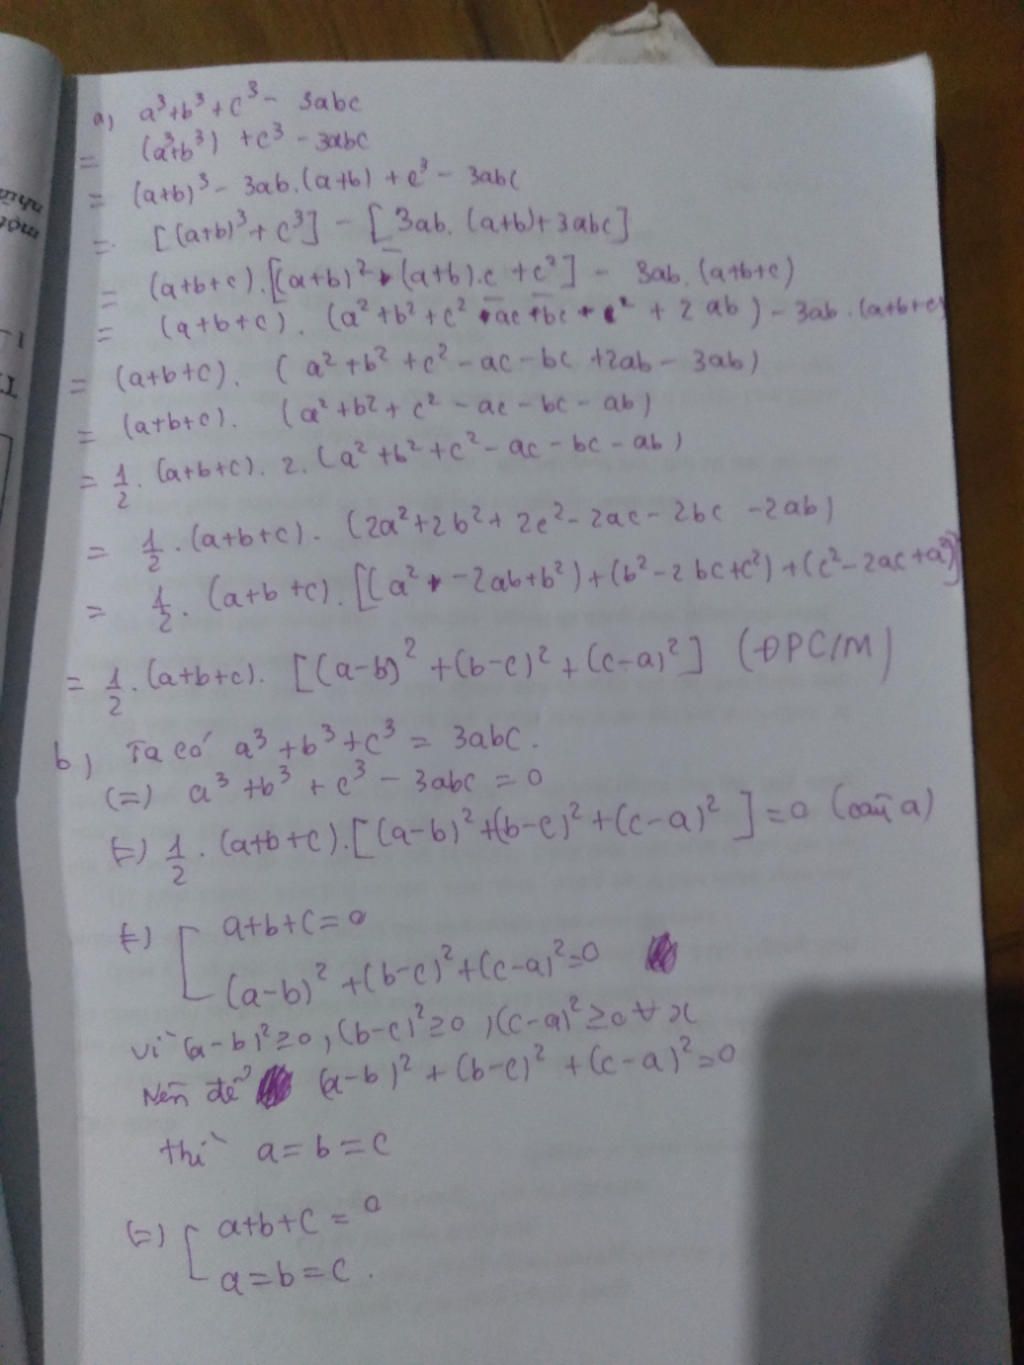 a) a³+b³+c³ - 3abc
= (a³+b³) + c³ - 3abc
= (a+b)³ - 3ab.(a+b) + c³ - 3abc
= [(a+b)³ + c³] - [3ab.(a+b)+3abc]
= (a+b+c).[(a+b)² - (a+b).c + c²] - 3ab.(a+b+c)
= (a+b+c). (a²+b²+c² - ac - bc + 2ab) - 3ab.(a+b+c)
= (a+b+c). (a²+b²+c² - ac - bc + 2ab - 3ab)
= (a+b+c). (a²+b²+c² - ac - bc - ab)
= 1/2.(a+b+c).2.(a²+b²+c² - ac - bc - ab)
= 1/2.(a+b+c).(2a²+2b²+2c² - 2ac - 2bc - 2ab)
= 1/2.(a+b+c).[(a² - 2ab+b²)+(b²-2bc+c²)+(c²-2ac+a²)]
= 1/2.(a+b+c).[(a-b)²+(b-c)²+(c-a)²] (ĐPC/M)
b) Ta có a³+b³+c³ = 3abc.
(=) a³+b³+c³ - 3abc = 0
(=) 1/2.(a+b+c).[(a-b)²+(b-c)²+(c-a)²]=0 (câu a)
(=) [ a+b+c=0
(a-b)²+(b-c)²+(c-a)²=0
Vì (a-b)²≥0, (b-c)²≥0, (c-a)²≥0 ∀x
Nên để (a-b)²+(b-c)²+(c-a)²=0
thì a=b=c
(=) [ a+b+c=0
a=b=c.